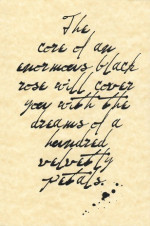 The
core of an
enormous black
rose will cover
you with the
dreams of a
hundred
velvetly
petals.